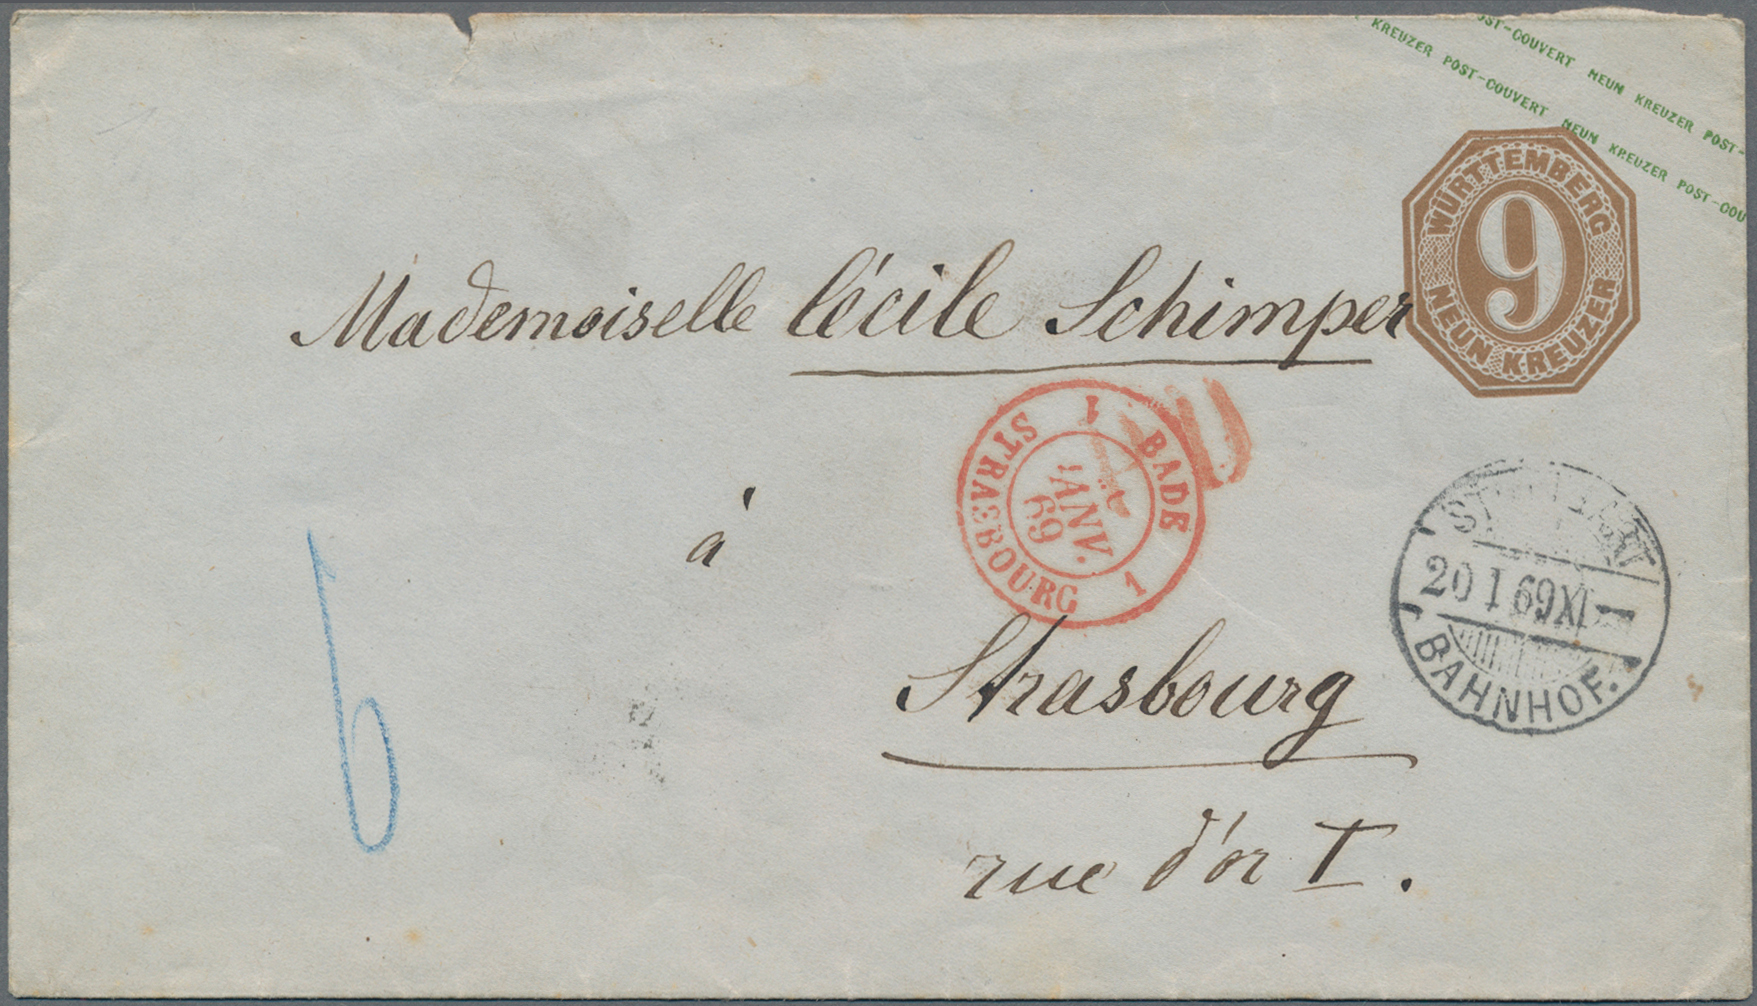 POST-COUVERT NEUN KREUZER POST-
KREUZER POST-COUVERT NEUN KREUZER POST-COU
WÜRTTEMBERG
9
NEUN KREUZER
Mademoiselle Cécile Schimper
1 BADE 1
JANV.
69
STRASBOURG
20 I 69 XI
BAHNHOF.
à
Strasbourg
rue d'or I.
6